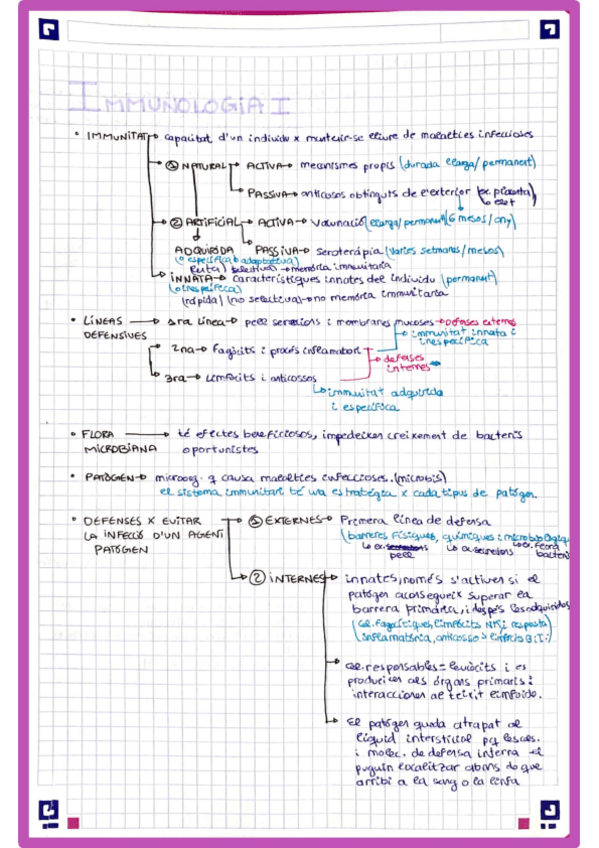 IMMUNOLOGIA I
• IMMUNITAT → capacitat d'un individu x mantenir-se lliure de malalties infeccioses
① NATURAL → ACTIVA → mecanismes propis (durada llarga/permanent)
PASSIVA → anticossos obtinguts de l'exterior (ex. placenta)
② ARTIFICIAL → ACTIVA → vacunació (llarga/permanent) (6 mesos/any)
ADQUIRIDA PASSIVA → seroteràpia (varies setmanes/mesos)
(o específica o adaptativa)
(lenta) (selectiva) → memòria immunitaria
INNATA → característiques innates del individu (permanent)
(o inespecífica)
(ràpida) (no selectiva) → no memòria immunitaria
• LÍNEAS → 1ra línea → pell secrecions i membranes mucoses → Defenses externes
DEFENSIVES
→ immunitat innata i
inespecífica
2na → fagòcits i procés inflamatori
→ defenses
internes
3ra → limfòcits i anticossos
→ immunitat adquirida
i específica
• FLORA → té efectes beneficiosos, impedeixen creixement de bacteris
MICROBIANA oportunistes
• PATÒGEN → microorg. q causa malalties infeccioses. (microbis)
el sistema immunitari té una estratègia x cada tipus de patógen.
• DEFENSES X EVITAR ① EXTERNES → Primera línea de defensa
LA INFECCIÓ D'UN AGENT
PATÓGEN
(barreres físiques, químiques i microbiològiques
ex. pell ex. secrecions ex. flora
bacteri
② INTERNES → innates, només s'actives si el
patógen aconsegueix superar la
barrera primària, i després les adquirides
(cel. fagocítiques, limfòcits NK i resposta
inflamatòria, anticossos i limfòcits B i T.)
→ cel. responsables = leucòcits i es
produeixen als órgans primaris:
interaccionen al teixit limfoide.
→ El patógen queda atrapat al
líquid intersticial pq les cel.
i molec. de defensa interna el
puguin localitzar abans de que
arribi a la sang o la limfa